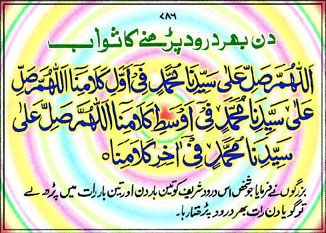 ۷۸۶
دن بھر درود پڑھنے کا ثواب
اَللّٰهُمَّ صَلِّ عَلٰى سَيِّدِنَا مُحَمَّدٍ فِىْ اَوَّلِ كَلَامِنَا اَللّٰهُمَّ صَلِّ
عَلٰى سَيِّدِنَا مُحَمَّدٍ فِىْ اَوْسَطِ كَلَامِنَا اَللّٰهُمَّ صَلِّ عَلٰى
سَيِّدِنَا مُحَمَّدٍ فِىْ اٰخِرِ كَلَامِنَا
بزرگوں نے فرمایا جو شخص اس درود شریف کو تین بار دن اور تین بار رات میں پڑھ لے
تو گویا دن رات بھر درود پڑھتا رہا۔